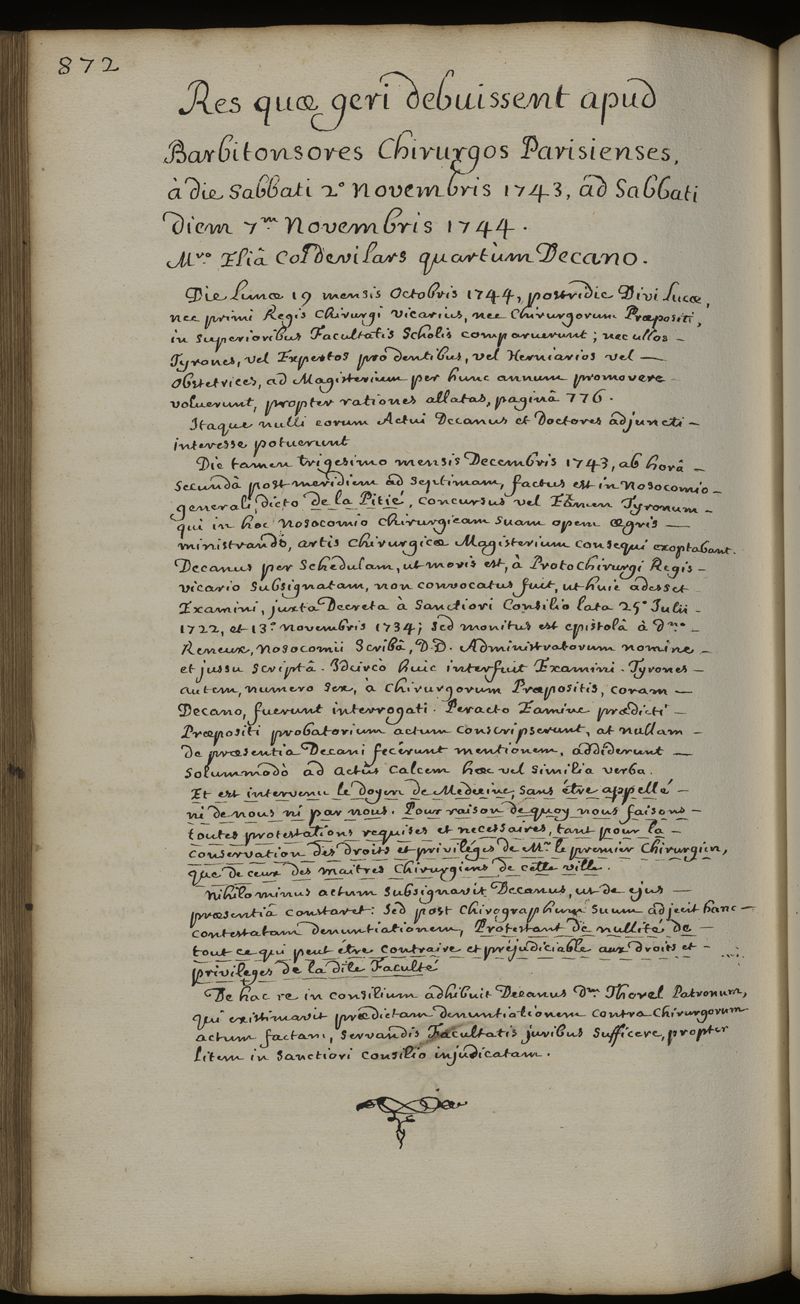 872
Res quæ geri debuissent apud
Barbitonsores Chirurgos Parisienses,
à die Sabbati 2° Novembris 1743, ad Sabbati
diem 7m Novembris 1744.
Mro Eliâ Col Devilars quartùm Decano.
Die Lunæ 19 mensis Octobris 1744, postridie Divi Lucæ,
nec primi Regis Chirurgi vicarius, nec Chirurgorum Præpositi,
in superioribus Facultatis Scholis comparuerunt; nec ullos -
Tyrones, vel Expertos pro dentibus, vel Herniarios vel —
obstetrices, ad Magisterium per hunc annum promovere -
voluerunt, propter rationes allatas, paginâ 776.
Itaque nulli eorum Actui Decanus et Doctores adjuncti -
interesse potuerunt
Die tamen trigesimo mensis Decembris 1743, ab horâ —
secundâ post meridiem ad septimam, factus est in Nosocomio -
generali, dicto de la Pitié, concursus vel Examen Tyronum -
qui in hoc Nosocomio chirurgicam suam opem ægris —
ministrando, artis chirurgicæ Magisterium consequi exoptabant.
Decanus per schedulam, ut moris est, à Protochirurgi Regis -
vicario subsignatam, non convocatus fuit, ut huic adesset
Examini, juxta Decreta à Sanctiori Consilio lata 25° Julii -
1722, et 13° Novembris 1734; sed monitus est epistolâ à dno -
Reneux, Nosocomii Scribâ, D.D. Administratorum nomine -
et jussu scriptâ. Idcircò huic interfuit Examini. Tyrones —
autem, numero sex, à Chirurgorum Præpositis, coram —
Decano, fuerunt interrogati. Peracto Examine prædicti -
Præpositi probatorium actum conscripserunt, at nullam -
de præsentia Decani fecerunt mentionem, addiderunt —
solummodò ad actûs calcem hæc vel similia verba.
Et est intervenu le doyen de Medecine, sans étre appellé -
ni de nous ni par nous. Pour raison de quoy nous faisons -
toutes protestations requises et necessaires, tant pour la -
conservation des droits et privileges de Mr le premier Chirurgien,
que de ceux des maitres Chirurgiens de cette ville.
Nihilominus actum subsignavit Decanus, ut de ejus —
præsentiâ constaret: sed post chirographum suum adjecit hanc —
contestatam denuntiationem, Protestant de nullité de —
tout ce qui peut étre contraire et préjudiciable aux droits et -
privileges de la dite Faculté
De hac re in consilium adhibuit Decanus Dm Thorel Patronum,
qui existimavit prædictam denuntiationem contra Chirurgorum
actum factam, servandis Facultatis juribus sufficere, propter
litem in Sanctiori consilio injudicatam.